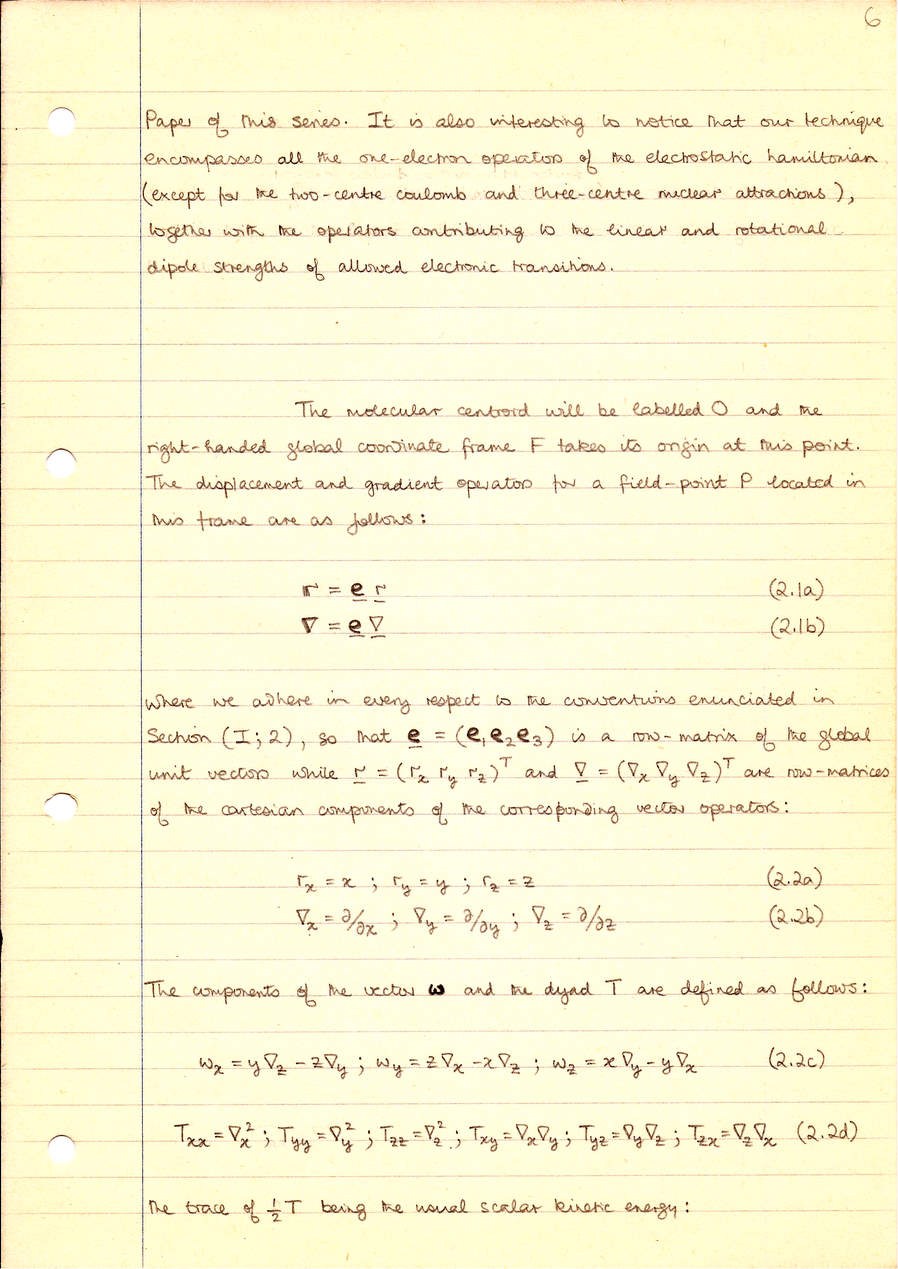 6
Paper of this series. It is also interesting to notice that our technique
encompasses all the one-electron operators of the electrostatic hamiltonian
(except for the two-centre coulomb and three-centre nuclear attractions),
together with the operators contributing to the linear and rotational
dipole strengths of allowed electronic transitions.
The molecular centroid will be labelled O and the
right-handed global coordinate frame F takes its origin at this point.
The displacement and gradient operators for a field-point P located in
this frame are as follows:
r = e r (2.1a)
∇ = e ∇ (2.1b)
where we adhere in every respect to the conventions enunciated in
Section (I; 2), so that e = (e₁e₂e₃) is a row-matrix of the global
unit vectors while r = (rₓ r_y r_z)ᵀ and ∇ = (∇ₓ ∇_y ∇_z)ᵀ are row-matrices
of the cartesian components of the corresponding vector operators:
rₓ = x ; r_y = y ; r_z = z (2.2a)
∇ₓ = ∂/∂x ; ∇_y = ∂/∂y ; ∇_z = ∂/∂z (2.2b)
The components of the vector ω and the dyad T are defined as follows:
ωₓ = y∇_z − z∇_y ; ω_y = z∇ₓ − x∇_z ; ω_z = x∇_y − y∇ₓ (2.2c)
Tₓₓ = ∇ₓ² ; T_yy = ∇_y² ; T_zz = ∇_z² ; T_xy = ∇ₓ∇_y ; T_yz = ∇_y∇_z ; T_zx = ∇_z∇ₓ (2.2d)
the trace of ½T being the usual scalar kinetic energy: